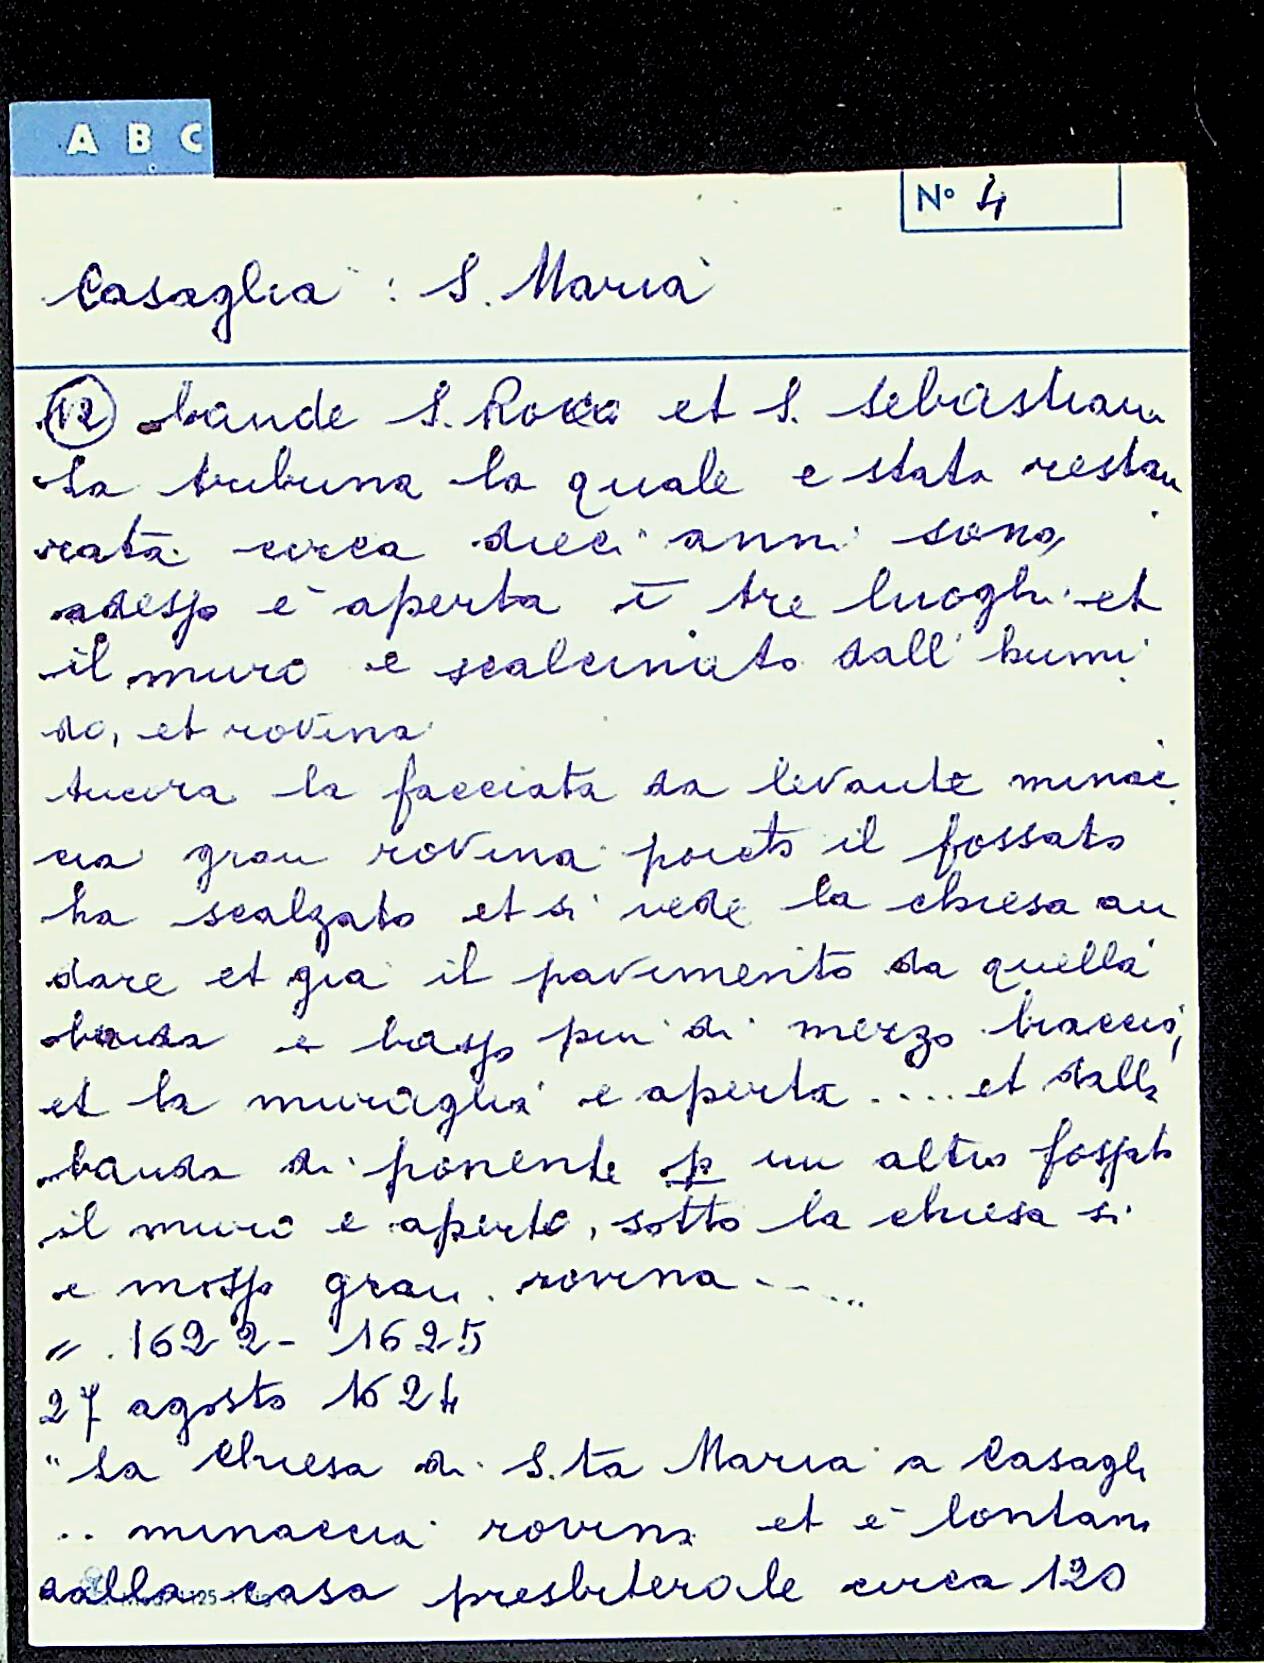 A B C
N° 4
Casaglia : S. Maria
(12) bande S. Rocco et S. Sebastiano
La tribuna la quale e stata restau
rata circa dieci anni sono,
adesso è aperta ī tre luoghi et
il muro e scalcinato dall' humi
do, et rovina
Ancora la facciata da levante minac
cia gran rovina poiche il fossato
ha scalzato et si vede la chiesa an
dare et già il pavimento da quella
banda è basso piu di mezzo braccio,
et la muraglia e aperta .... et dalla
banda di ponente p un altro fossato
il muro e aperto, sotto la chiesa si
e mosso gran rovina ....
" 1622 - 1625
27 agosto 1624
"La Chiesa di S.ta Maria a Casagli
.. minaccia rovina et è lontana
dalla casa presbiterale circa 120